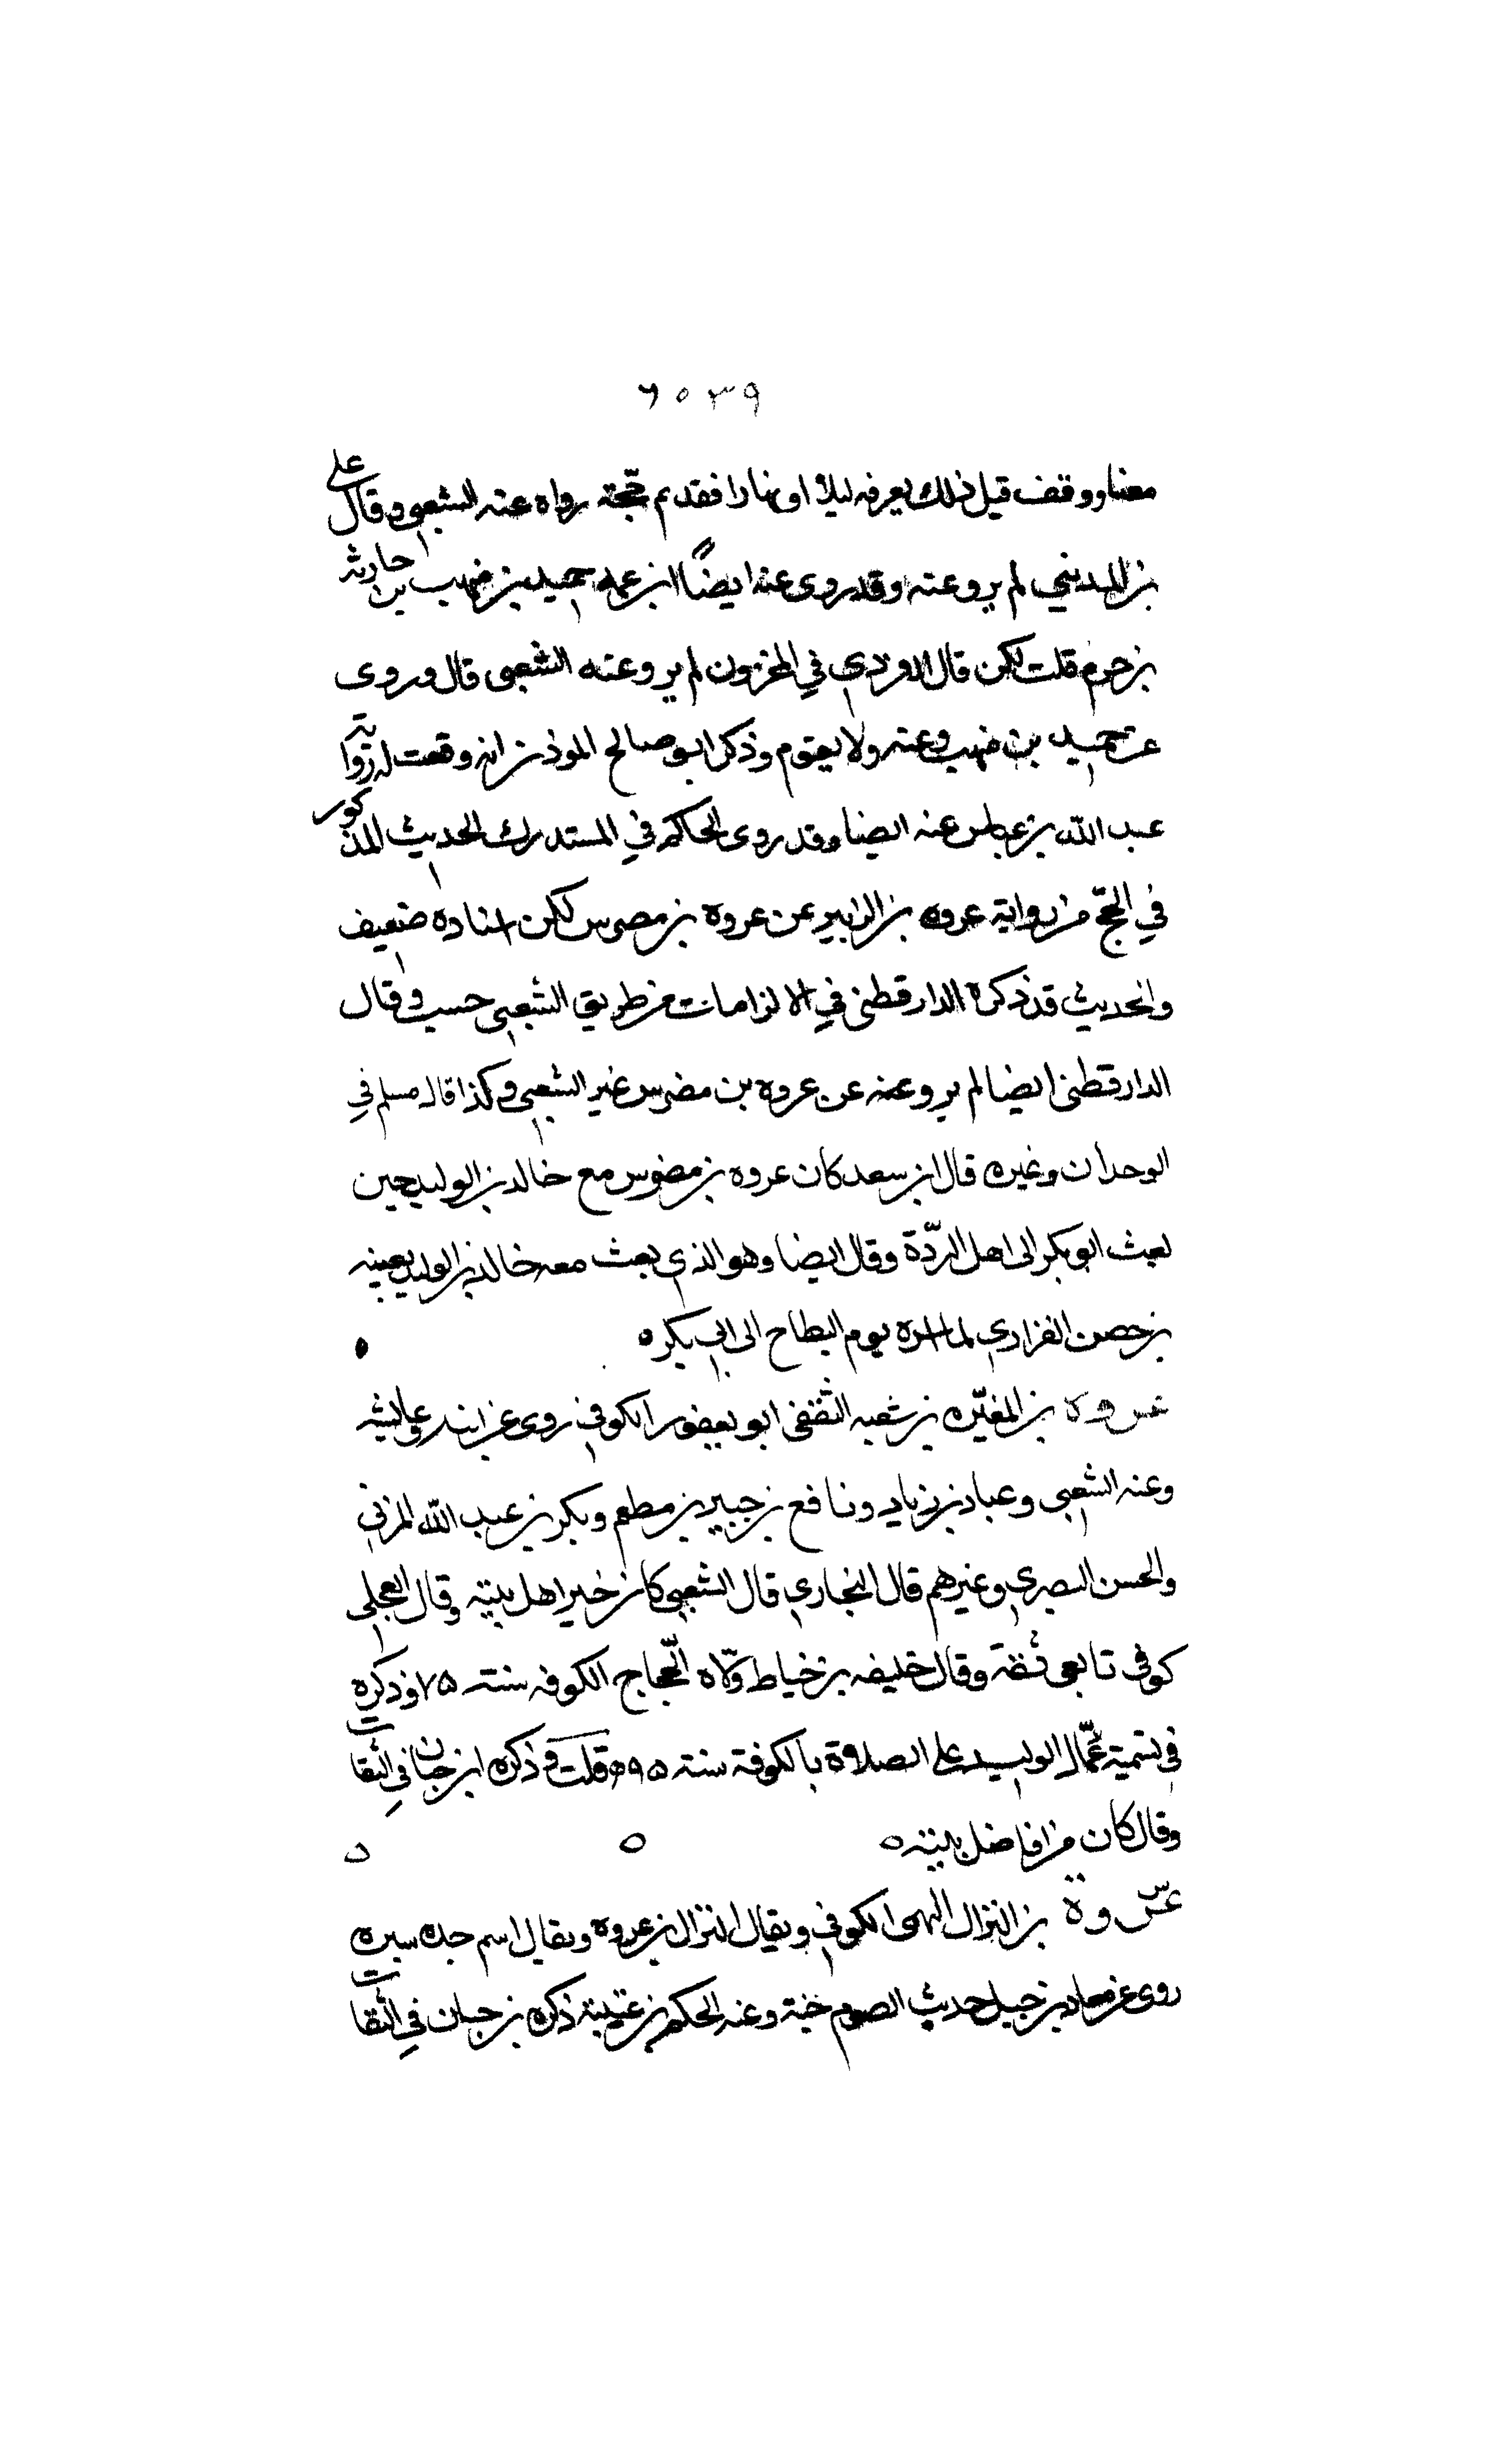 ٦٥٣٩
معنا ووقف قبل ذلك بعرفه ليلا او نهارا فقد تم حجّته رواه عنه الشعبي وقال على
بن المديني لم يرو عنه وقد روى عنه ايضًا ابن عمه حميد بن منهب بن حارثه
بن خريم قلت لكن قال الازدي في المخزون لم يرو عنه الشعبى قال وروى
عن حميد بن منهب وعنه ولا يقوم وذكر ابو صالح الموذن انه وقعت له رواية
عبد الله بن عباس عنه ايضا وقد روى الحاكم في المستدرك الحديث المذكور
في الحجّ من رواية عروه بن الزبير عن عروه بن مضرس لكن اسناده ضعيف
والحديث قد ذكره الدارقطنى في الالزامات من طريق الشعبى حسب وقال
الدارقطنى ايضا لم يرو عنه عن عروه بن مضرس غير الشعبي وكذا قال مسلم في
الوحدان وغيره قال ابن سعد كان عروه بن مضرس مع خالد بن الوليد حين
بعث ابو بكر الى اهل الردّة وقال ايضا وهو الذي بعث معه خالد بن الوليد بعيينه
بن حصن الفزاري لما اسره يوم البطاح الى ابي بكر ٥
عروة بن المغيّره بن شعبه الثقفى ابو يعفور الكوفي روى عن ابيه وعايشه
وعنه الشعبي وعباد بن زياد ونافع بن جبير بن مطعم وبكر بن عبد الله المزني
والحسن البصري وغيرهم قال البخاري قال الشعبي كان خير اهل بيته وقال العجلى
كوفى تابعى ثقة وقال خليفه بن خياط ولّاه الحجّاج الكوفه سنة ٧٥ وذكره
في تسمية عمّال الوليد على الصلاة بالكوفة سنة ٩٥ قلت وذكره ابن حبان في الثقات
وقال كان من افاضل بيته ٥
عروة بن النزال التميمى الكوفي ويقال النزال بن عروه ويقال اسم جده سبره
روى عن معاذ بن جبل حديث الصوم جنة وعنه الحكم بن عتيبة ذكره بن حبان في الثقات